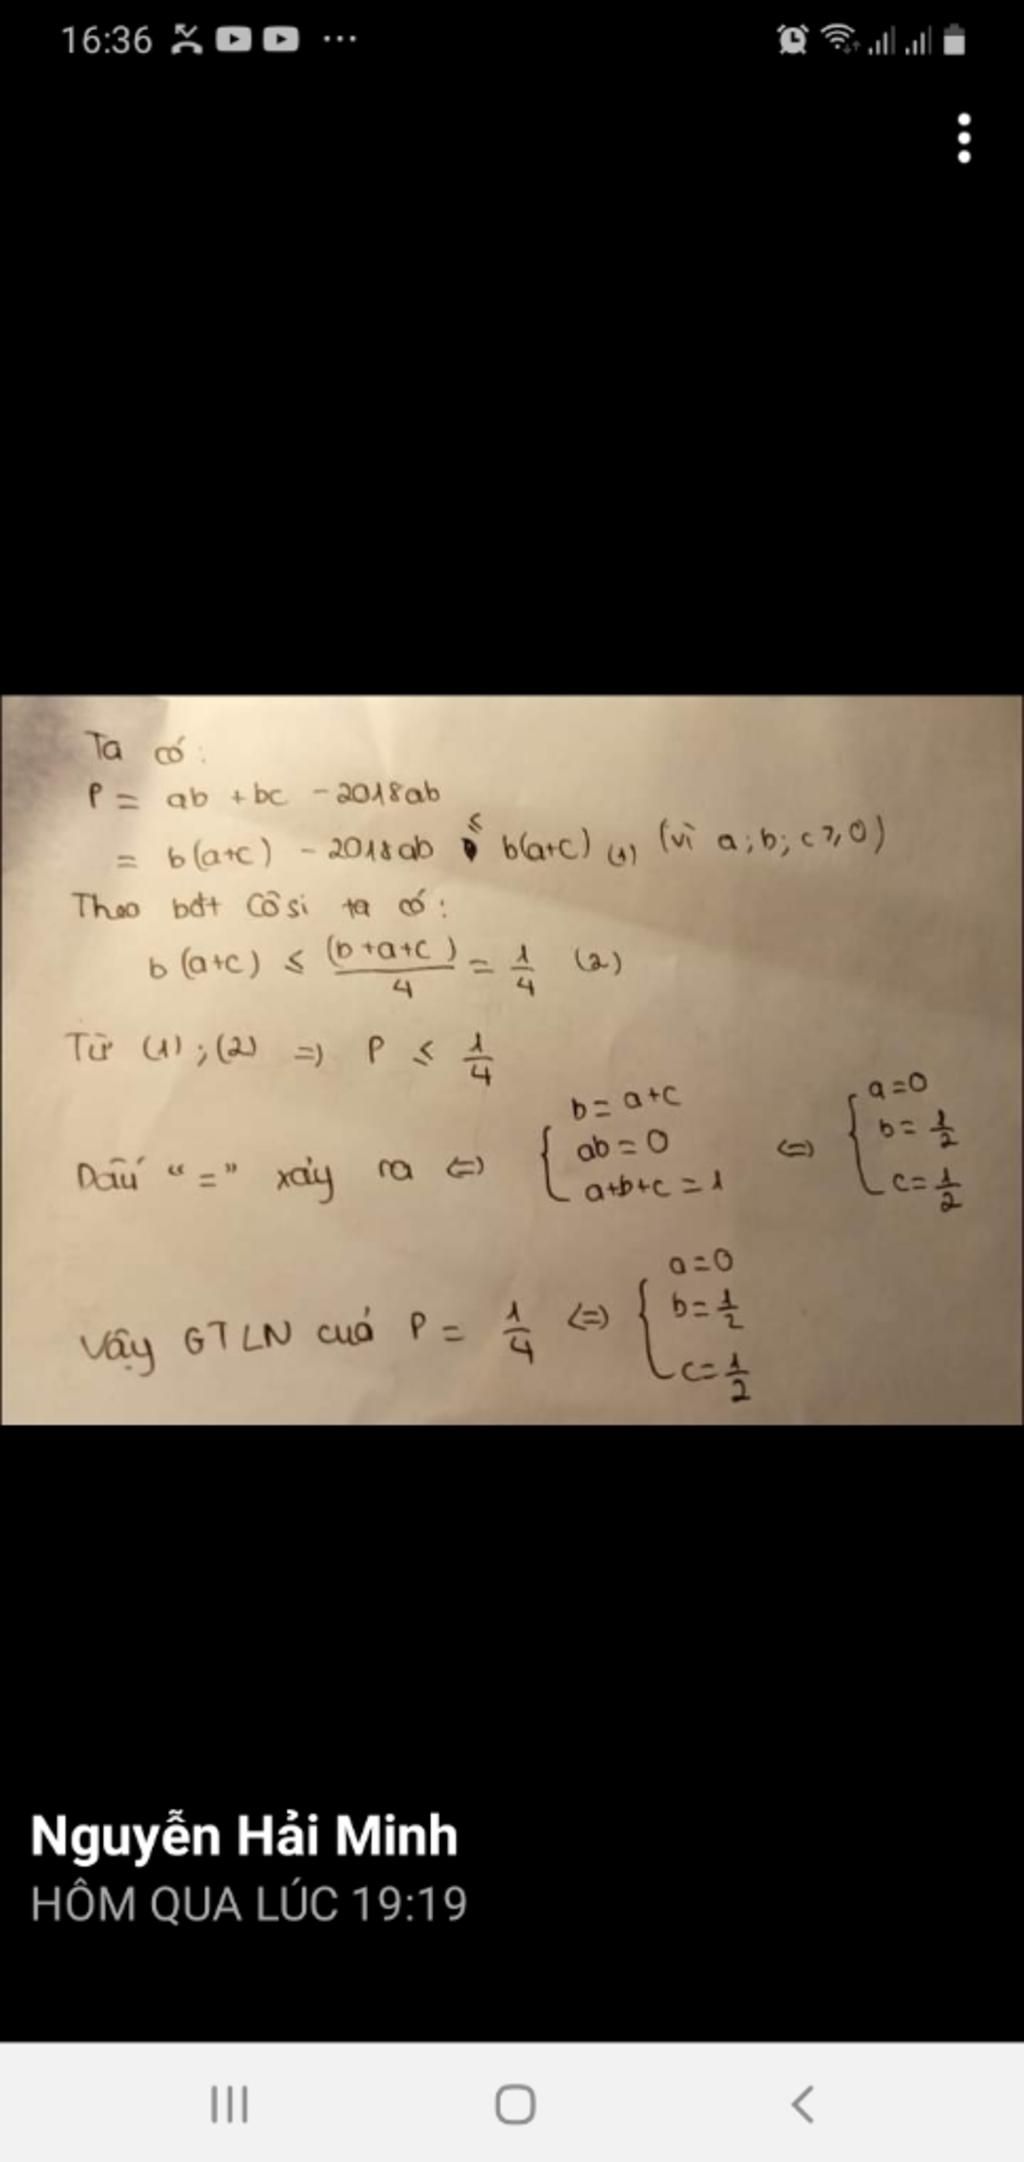 16:36
Ta có:
P = ab + bc - 2018ab
= b(a+c) - 2018ab ≤ b(a+c) (1) (vì a; b; c ≥ 0)
Theo bđt Côsi ta có:
b(a+c) ≤ (b+a+c)/4 = 1/4 (2)
Từ (1); (2) => P ≤ 1/4
Dấu "=" xảy ra <=> { b = a+c ab = 0 a+b+c = 1 <=> { a=0 b = 1/2 c = 1/2
Vậy GTLN cuả P = 1/4 <=> { a=0 b = 1/2 c = 1/2
Nguyễn Hải Minh
HÔM QUA LÚC 19:19